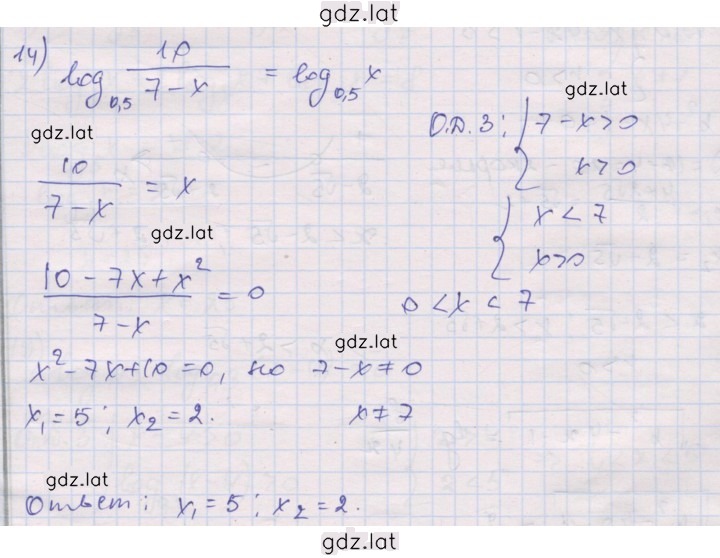 gdz.lat
14) log_{0,5} 10/(7-x) = log_{0,5} x
gdz.lat
О.Д.З: { 7-x>0
x>0
gdz.lat
10/(7-x) = x
{ x<7
x>0
gdz.lat
(10-7x+x²)/(7-x) = 0
0<x<7
gdz.lat
x²-7x+10=0, но 7-x≠0
x₁=5; x₂=2. x≠7
gdz.lat
Ответ: x₁=5; x₂=2.
gdz.lat